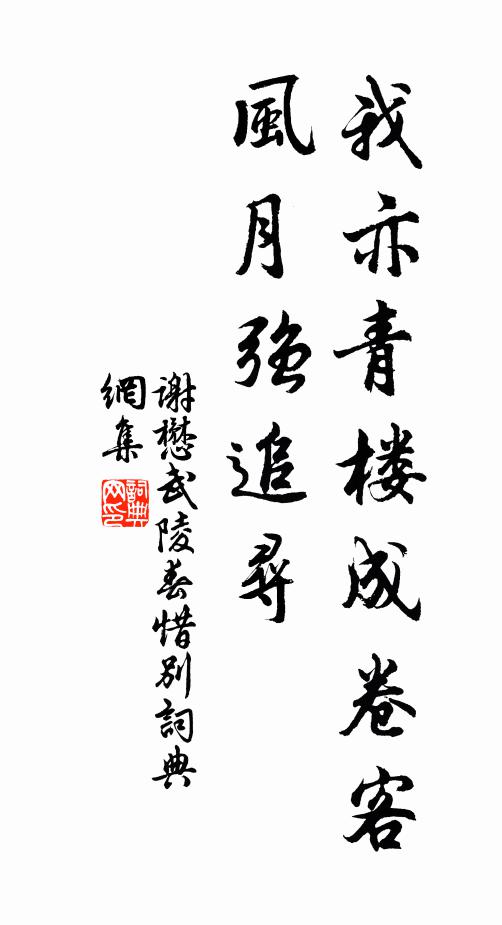 我亦青楼成卷客
風月強追尋
謝懋武陵春惜别詞典
網集
詞典
网印